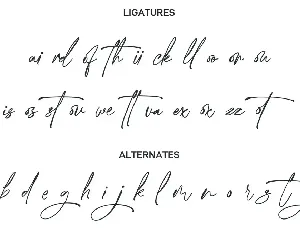 LIGATURES
ai rd of th ii ck ll oo on ou
is os st ov we tt va ex ox zz ot
ALTERNATES
b d e g h i j k l m n o r s t